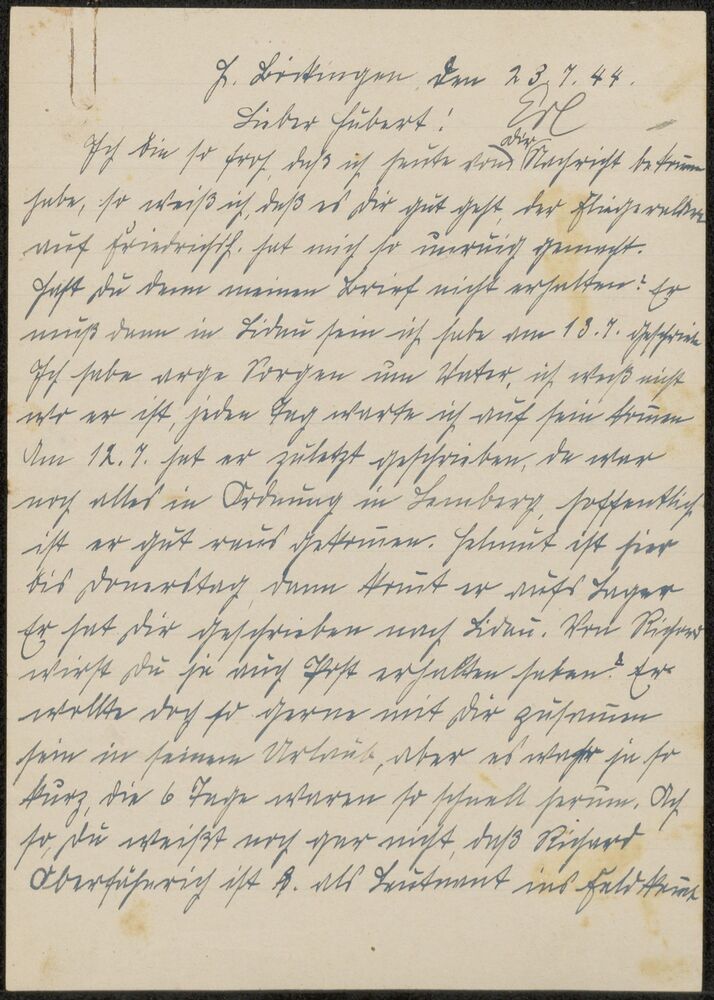 H. Böckingen, den 23.7.44.
Lieber Hubert!
Ich bin so froh, daß ich heute von Dir Nachricht bekommen
habe, so weiß ich, daß es Dir gut geht, der Fliegeralarm
auf Friedrichsh. hat mich so unruig gemacht.
Hast Du denn meinen Brief nicht erhalten? Er
muß dann in Lidau sein ich habe am 13.7. geschrieben
Ich habe arge Sorgen um Vater, ich weiß nicht
wo er ist, jeden Tag warte ich auf sein kommen
Am 12.7. hat er zuletzt geschrieben, da war
noch alles in Ordnung in Lemberg, hoffentlich
ist er gut raus gekommen. Helmut ist hier
bis Donerstag, dann kommt er aufs Lager
Er hat Dir geschrieben nach Lidau. Von Richard
wirst Du ja auch Post erhalten haben? Er
wollte doch so gerne mit Dir zusammen
sein in seinem Urlaub, aber es wahr ja so
kurz, die 6 Tage waren so schnell herum. Ach
so, Du weißt noch gar nicht, daß Richard
Oberfähnrich ist u. als Leutnant ins Feld kommt